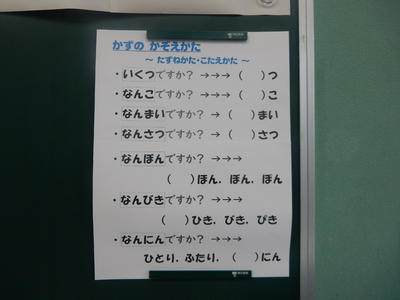 かずの かぞえかた
～ たずねかた・こたえかた ～
・いくつですか？ →→→ (　　)つ
・なんこですか？ →→→ (　　)こ
・なんまいですか？ → (　　)まい
・なんさつですか？ → (　　)さつ
・なんぼんですか？ →→→
(　　)ほん．ぼん．ぽん
・なんびきですか？ →→→
(　　)ひき．びき．ぴき
・なんにんですか？ →→→
ひとり．ふたり．(　　)にん